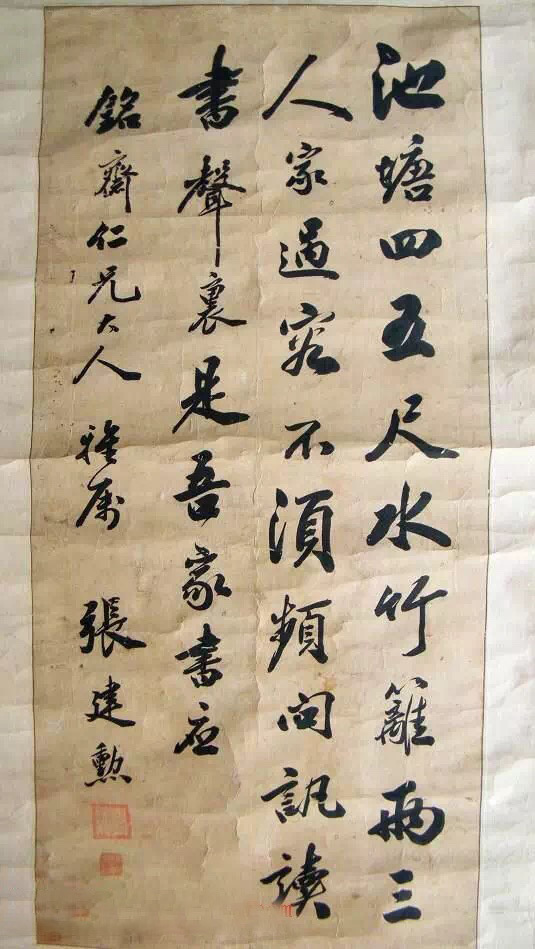 池塘四五尺水竹籬兩三
人家過客不須頻問訊讀
書聲裏是吾家書應
銘齋仁兄大人 雅屬 張建勲